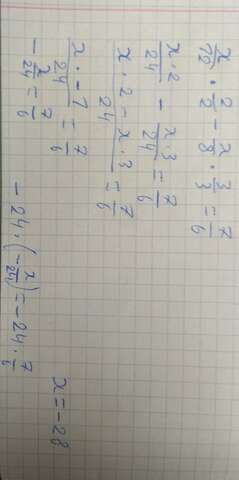 x/12 · 2/2 - x/8 · 3/3 = 7/6
x·2/24 - x·3/24 = 7/6
x·2 - x·3/24 = 7/6
x·-1/24 = 7/6
-x/24 = 7/6
-24·(-x/24) = -24·7/6
x = -28